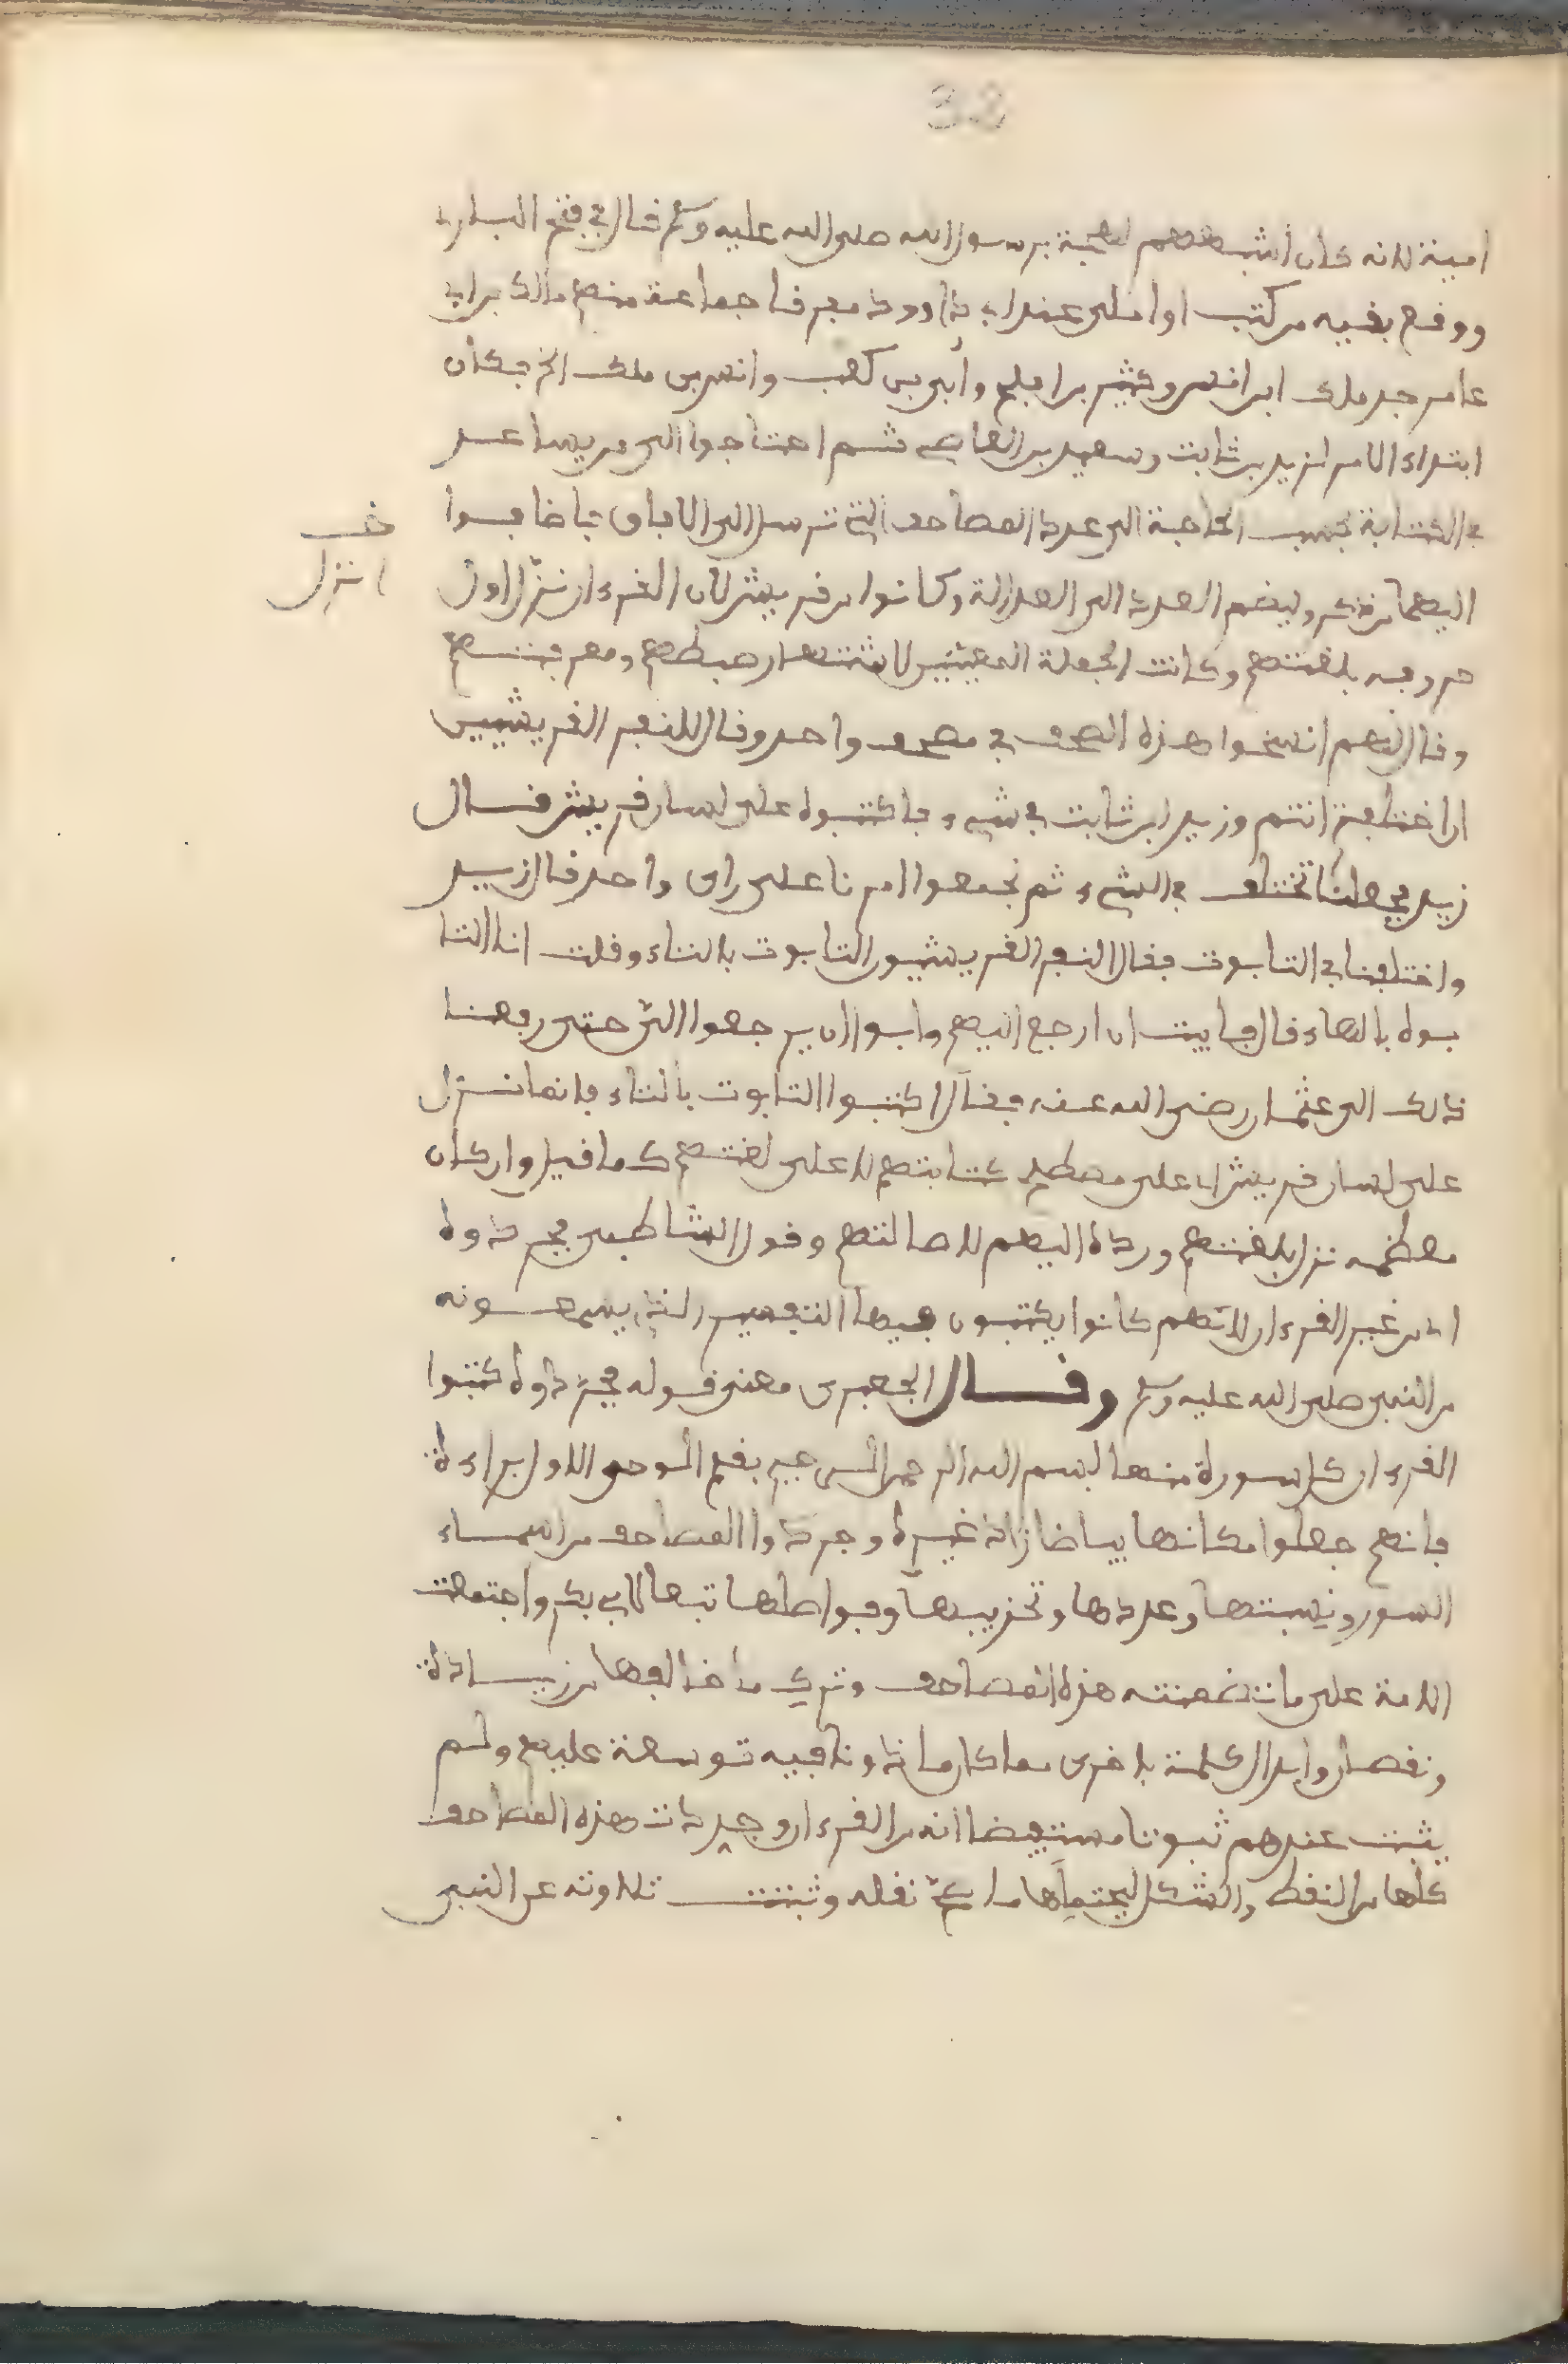 32
امية لانه كان أشبههم لهجة برسول الله صلى الله عليه وسلم قال في فتح البارى
ووقع بقيه من كتب او املى عند ابى داوود مبرفا جماعة منهم مالك بن ابى
عامر جد ملك ابن انس وكثير بن افلح وأبي بن كعب وانس بن ملك الخ فكأن
ابتداء الامر لزيد بن ثابت وسعيد بن العاصى ثم احتاجوا الى من يساعد
في الكتابة بحسب الحاجة الى عدد المصاحف التي ترسل الى الافاق فاضافوا
خف
انزل
اليهما من ذكر وليضم العدد الى العدالة وكانوا من قريش لأن القرءان نزّل اول
حروفه بلغتهم وكانت الجملة المعينين لاشتهار ضبطهم ومعرفتهم
وقال لهم انسخوا هذه الصحف في مصحف واحد وقال للنفر القريشيين
ان اختلفتم انتم وزيد ابن ثابت في شىء فاكتبوه على لسان قريش قال
زيد فجعلنا نختلف في الشىء ثم نجمعوا امرنا على راى واحد قال زيد
واختلفنا في التابوت فقال النفر القريشيون التابوت بالتاء وقلت انا التا
بوه بالهاء قال فابيت ان ارجع اليهم وابوا ان يرجعوا الىّ حتى رفعنا
ذلك الى عثمان رضى الله عنه فقال اكتبوا التابوت بالتاء فانما نزل
على لسان قريش اى على مصطلح كتابتهم لا على لغتهم كما قيل وان كان
معظمه نزل بلغتهم ورده اليهم لاصالتهم وقول الشاطبى فجردوه
اى من غير القرءان لانهم كانوا يكتبون فيها التفسير الذى يسمعونه
من النبى صلى الله عليه وسلم وقال الجعبرى معنى قوله فجرّدوه كتبوا
القرءان كل سورة منها بسم الله الرحمن الرحيم بقلم الوحى الاول براءة
فانهم جعلوا مكانها بياضا زاد غيره وجردوا المصاحف من اسماء
السور ونسبتها وعددها وتحزيبها وفواصلها تبعا لابى بكر واجتمعت
الامة على ما تضمنته هذه المصاحف وترك ما خالفها من زيادة
ونقصان وابدال كلمة باخرى مما كان ماذونا فيه توسعة عليهم ولم
يثبت عندهم ثبوتا مستفيضا انه من القرءان وجردت هذه المصاحف
كلها من النقط والشكل ليحتملها ما صحّ نقله وثبتت تلاوته عن النبى